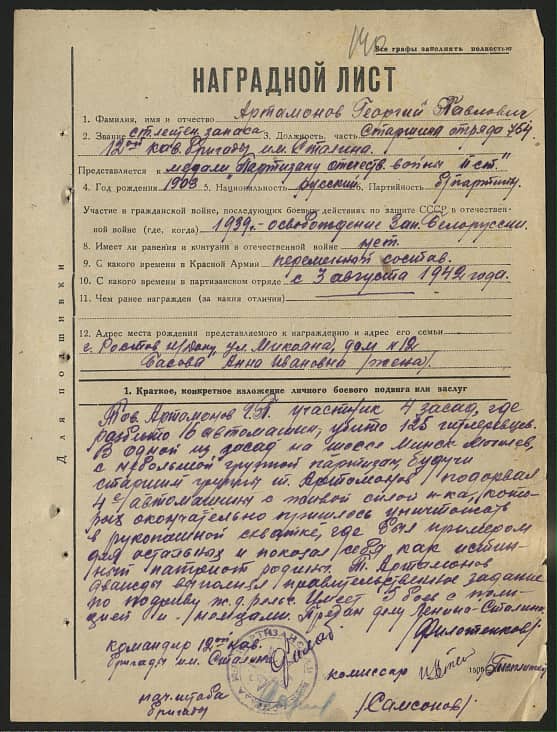 Все графы заполнять полностью
НАГРАДНОЙ ЛИСТ
1. Фамилия, имя и отчество Артамонов Георгий Павлович
2. Звание ст. лейтен. запаса 3. Должность, часть Старшина отряда 764
12ой кав. бригады им. Сталина.
Представляется к медали "Партизану отечеств. война I ст."
4. Год рождения 1903 5. Национальность русский 6. Партийность б/партийн.
Участие в гражданской войне, последующих боевых действиях по защите СССР и отечествен-
ной войне (где, когда) 1939г.- освобождение Зап. Белоруссии.
8. Имеет ли ранения и контузии в отечественной войне нет.
9. С какого времени в Красной Армии переменный состав.
10. С какого времени в партизанском отряде с 3 августа 1942 года.
11. Чем ранее награжден (за какие отличия)
12. Адрес места рождения представляемого к награждению и адрес его семьи
г. Ростов н/Дону, ул. Микояна, дом № 12
Басова Анна Ивановна /жена/.
Для подшивки
1. Краткое, конкретное изложение личного боевого подвига или заслуг
Тов. Артамонов Г.П. участник 4 засад, где
разбито 16 автомашин, убито 125 гитлеровцев.
В одной из засад на шоссе Минск-Могилев,
с небольшой группой партизан, будучи
старшим группы т. Артамонов подорвал
4е автомашины с живой силой п-ка, кото-
рых окончательно пришлось уничтожать
в рукопашной схватке, где был примером
для остальных и показал себя как истин-
ный патриот родины. Т. Артамонов
дважды выполнял правительственное задание
по подрыву ж.д. рельс. Имеет 5 боев с поли-
цией и немцами. Предан делу Ленина-Сталина.
командир 12ой кав.
бригады им. Сталина /Филотенков/
комиссар
нач. штаба
бригады /Самсонов/